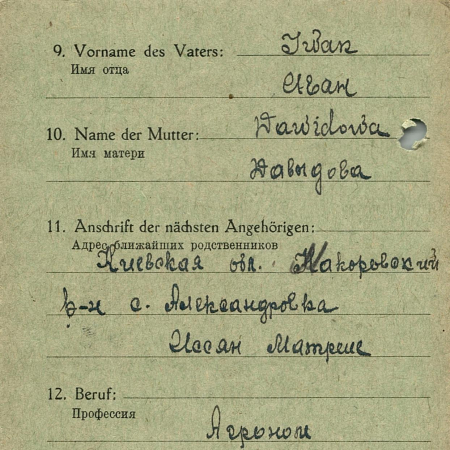 9. Vorname des Vaters: Iwan
Имя отца
Иван
10. Name der Mutter: Dawidowa
Имя матери
Давыдова
11. Anschrift der nächsten Angehörigen:
Адрес ближайших родственников
Киевская обл.
р-н с. Александровка
Матрене
12. Beruf:
Профессия
Агроном